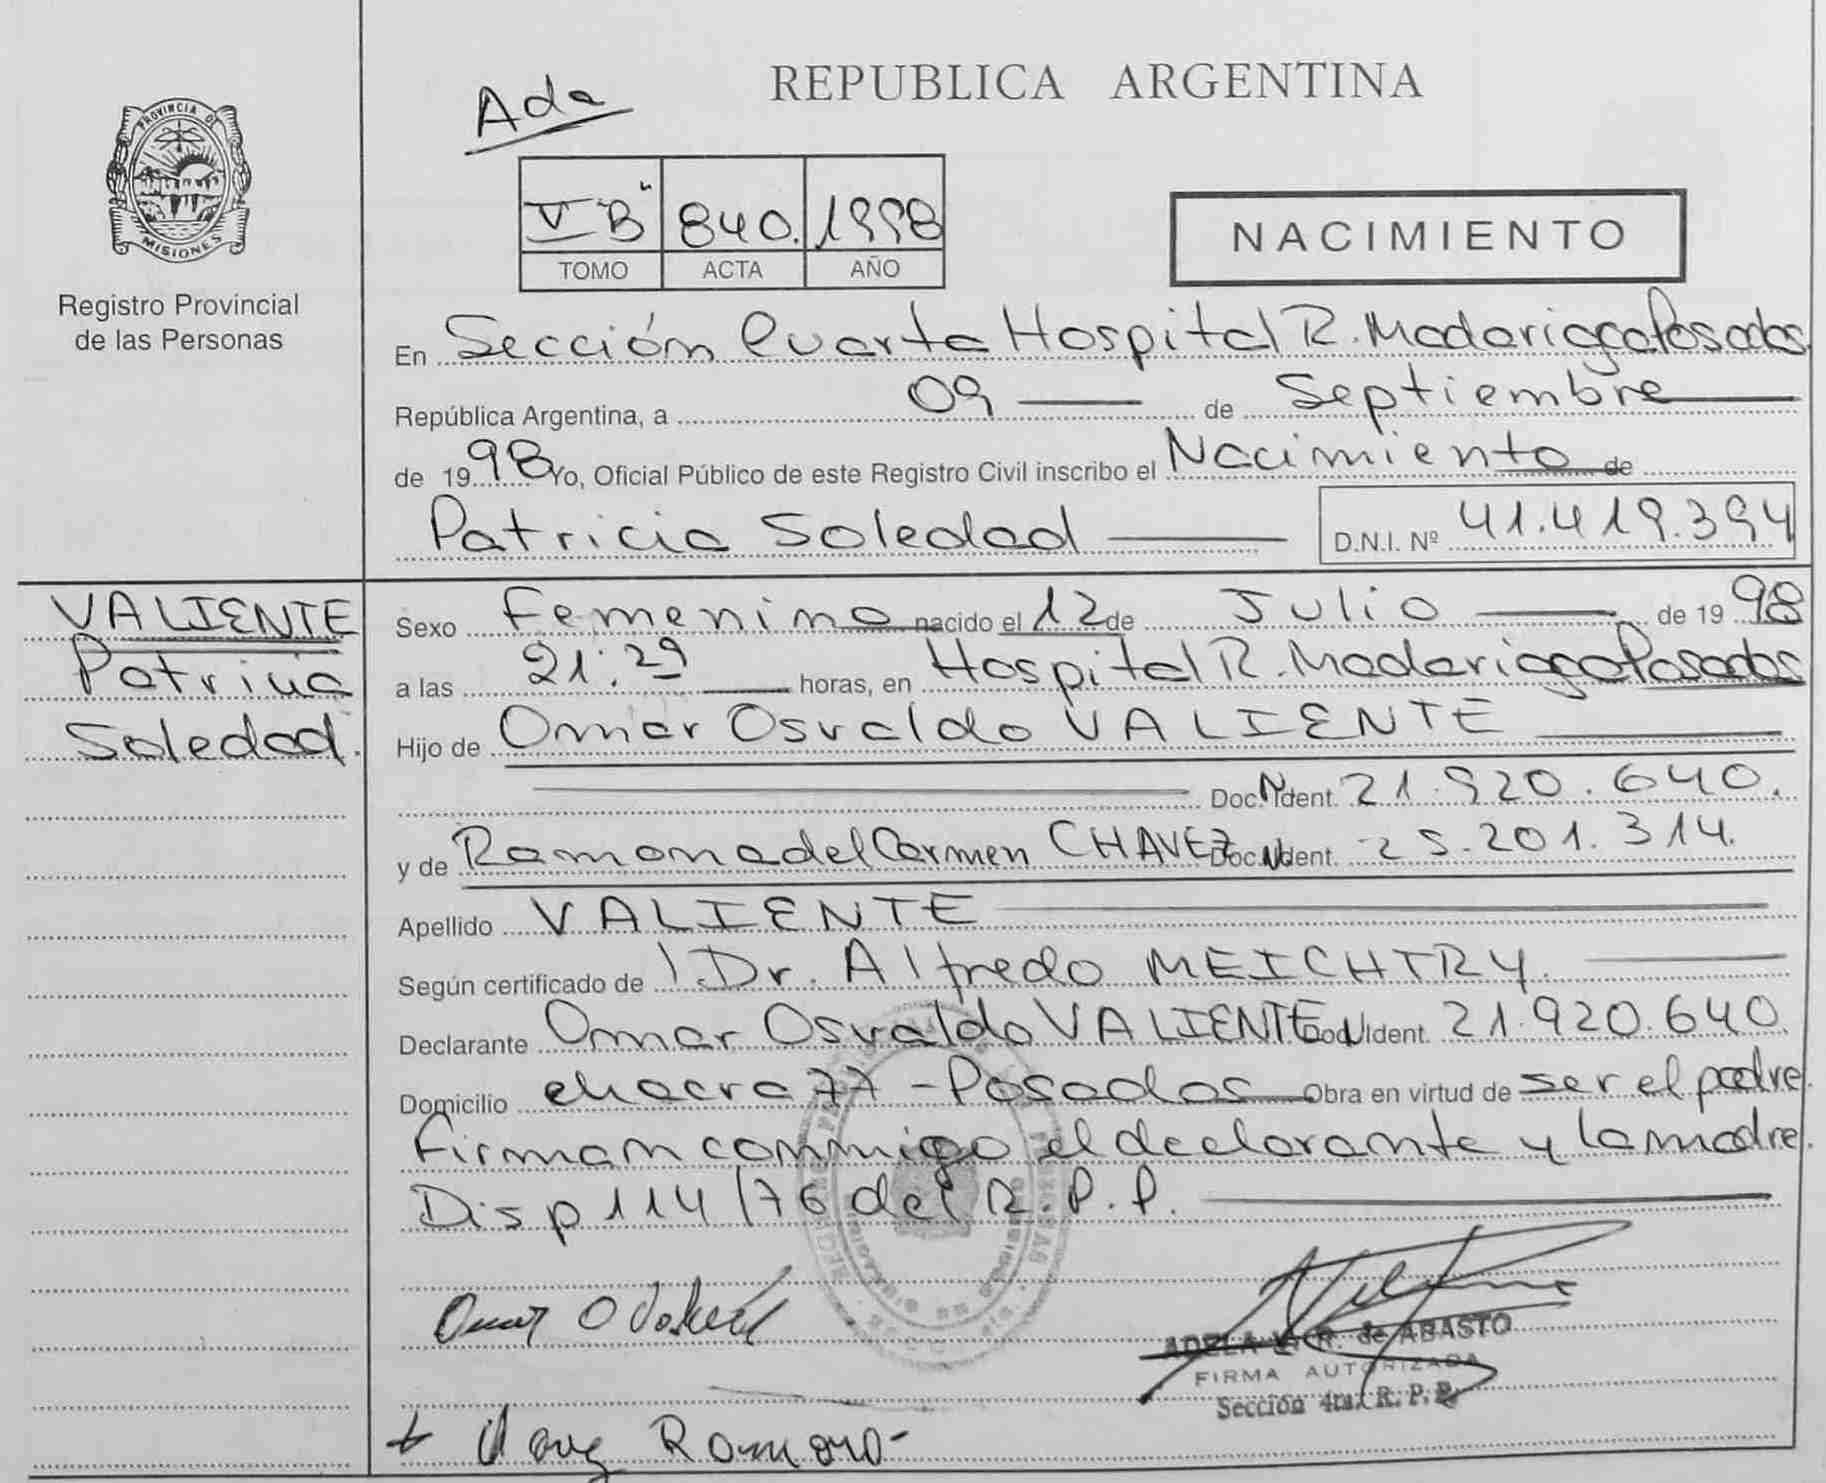 REPUBLICA ARGENTINA
Ada
PROVINCIA DE
MISIONES
Registro Provincial
de las Personas
V "B" 840. 1998
TOMO ACTA AÑO
NACIMIENTO
En Sección Cuarta Hospital R. Madariaga Posadas
República Argentina, a 09 de Septiembre
de 1998 Yo, Oficial Público de este Registro Civil inscribo el Nacimiento de
Patricia Soledad D.N.I. Nº 41.419.394
VALIENTE
Patricia
Soledad.
Sexo Femenino nacido el 12 de Julio de 1998
a las 21:29 horas, en Hospital R. Madariaga Posadas
Hijo de Omar Osvaldo VALIENTE
Doc. N Ident. 21.920.640.
y de Ramona del Carmen CHAVEZ Doc. N Ident. 25.201.314.
Apellido VALIENTE
Según certificado de Dr. Alfredo MEICHTRY.
Declarante Omar Osvaldo VALIENTE Doc. N Ident. 21.920.640
Domicilio chacra 77 - Posadas Obra en virtud de ser el padre.
Firman conmigo el declarante y la madre.
Disp 114/76 del R.P.P.
Omar O
ADELA de ABASTO
FIRMA AUTORIZADA
Sección 4ta. R. P. P.
Ramona